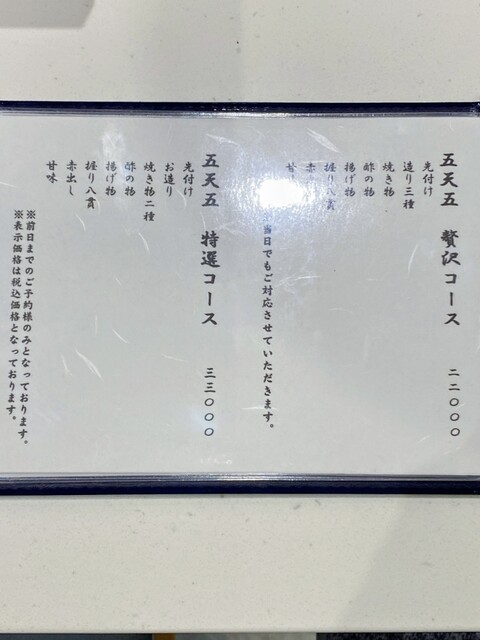 五天五 贅沢コース 二二〇〇〇
先付け
造り三種
焼き物
酢の物
揚げ物
握り八貫
赤
甘
当日でもご対応させていただきます。
五天五 特選コース 三三〇〇〇
先付け
お造り
焼き物二種
酢の物
揚げ物
握り八貫
赤出し
甘味
※前日までのご予約様のみとなっております。
※表示価格は税込価格となっております。